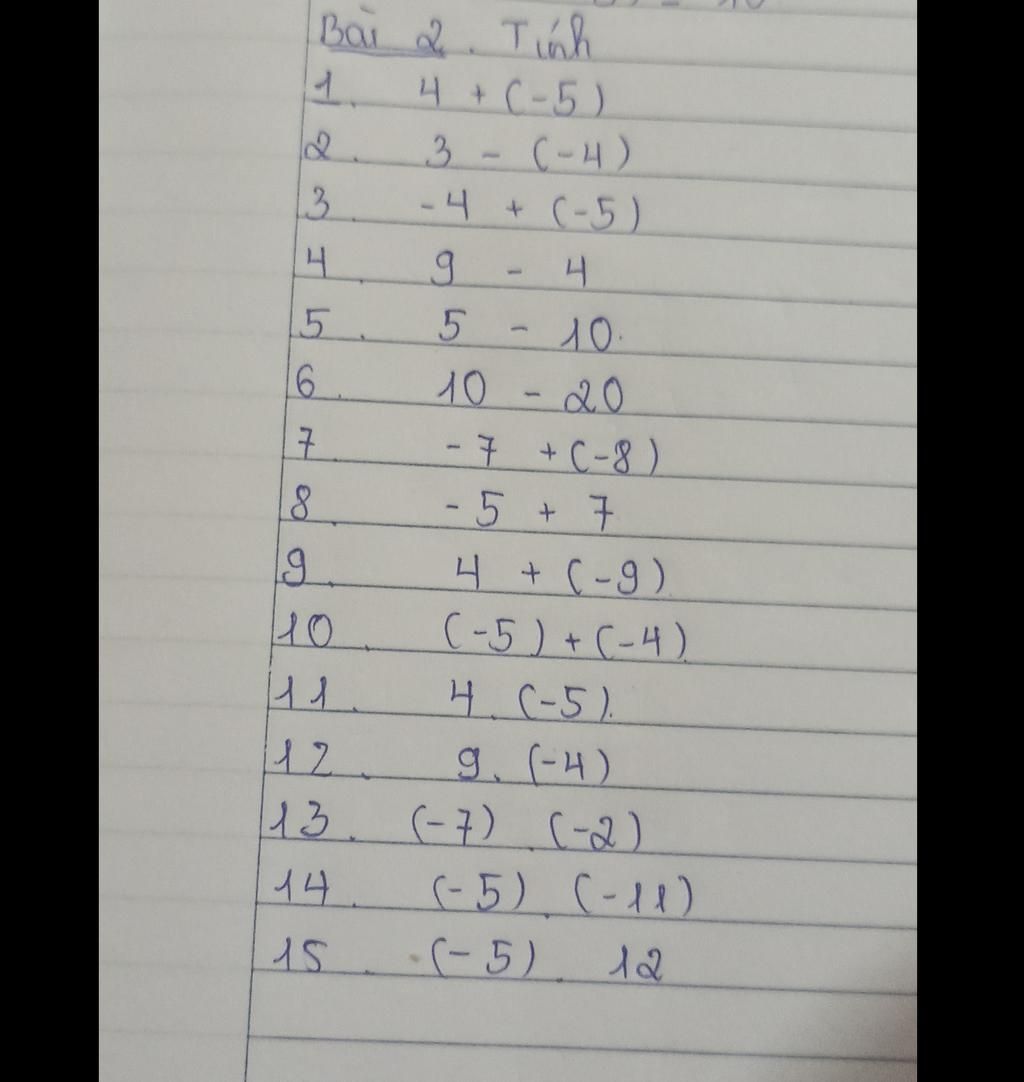 Bài 2. Tính
1. 4 + (-5)
2. 3 - (-4)
3. -4 + (-5)
4. 9 - 4
5. 5 - 10.
6. 10 - 20
7. -7 + (-8)
8. -5 + 7
9. 4 + (-9)
10. (-5) + (-4)
11. 4 . (-5).
12. 9 . (-4)
13. (-7) . (-2)
14. (-5) . (-11)
15. (-5) . 12